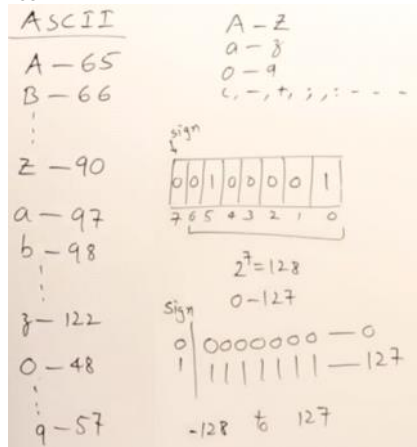 ASCII
A - 65
B - 66
Z - 90
a - 97
b - 98
z - 122
0 - 48
9 - 57
A - Z
a - z
0 - 9
(, -, +, ;, : - - -
sign
0 0 1 0 0 0 0 1
7 6 5 4 3 2 1 0
2^7 = 128
0 - 127
Sign
0 | 0000000 — 0
1 | 1111111 — 127
-128 to 127